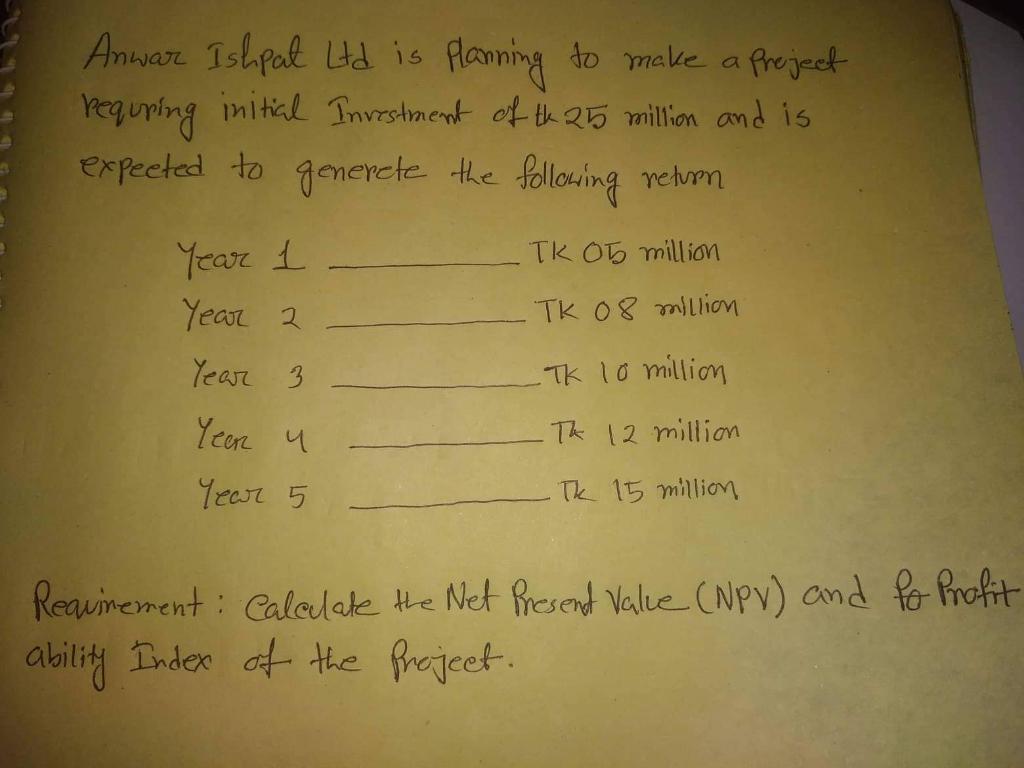 Anwar Ishpat Ltd is planning to make a project
requring initial Investment of tk 25 million and is
expected to generete the following return
Year 1 ________ TK 05 million
Year 2 ________ TK 08 million
Year 3 ________ TK 10 million
Year 4 ________ Tk 12 million
Year 5 ________ Tk 15 million
Requirement : Calculate the Net Present Value (NPV) and Profit
ability Index of the Project.